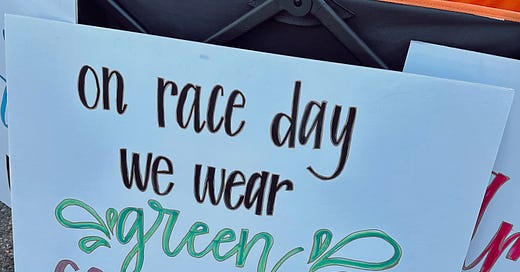 on race day
we wear
green